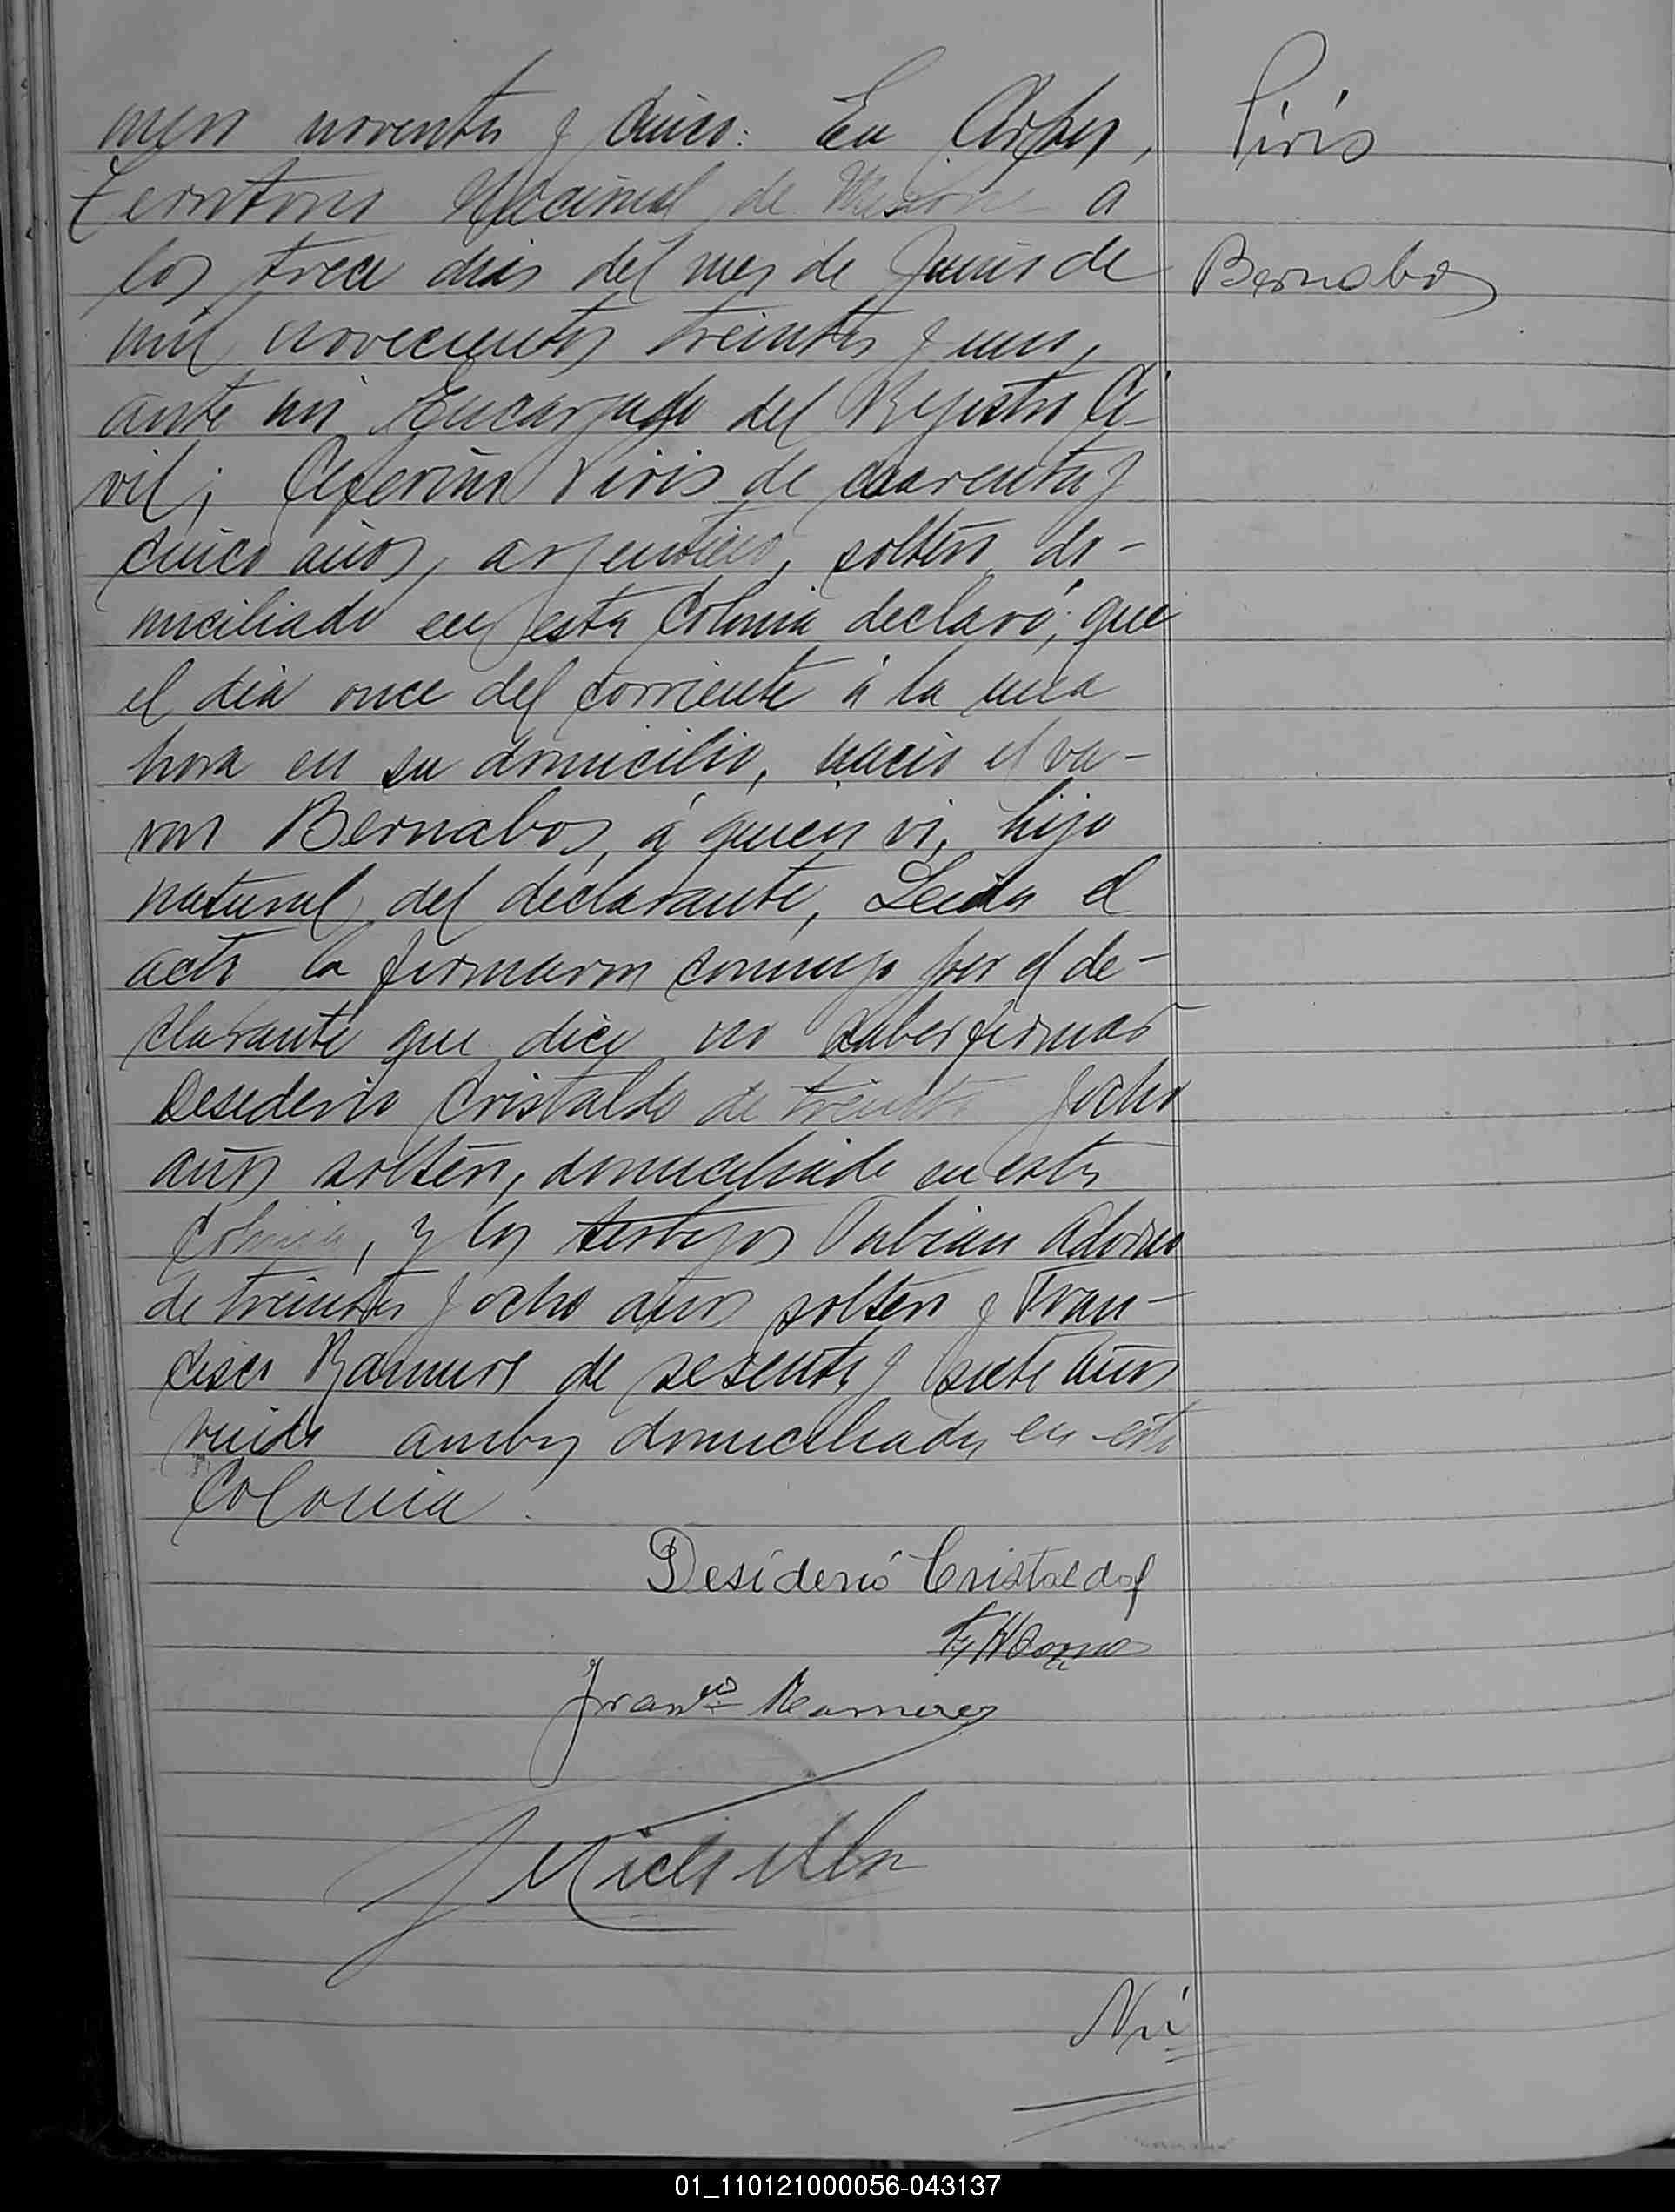 mero noventa y cinco: En Corpus,
Territorio Nacional de Misiones a
los trece dias del mes de Junio de
mil novecientos treinta y uno,
ante mi Encargado del Registro Ci-
vil; Ceferino Piris de cuarenta y
cinco años, argentino, soltero do-
miciliado en esta Colonia declaró; que
el dia once del corriente á la una
hora en su domicilio, nació el va-
ron Bernabos, á quien vi, hijo
natural del declarante, Leida el
acta la firmaron conmigo por el de-
clarante que dice no saber firmar
Desiderio Cristaldo de treinta y ocho
años soltero, domiciliado en esta
Colonia, y los testigos Fabian Adorno
de treinta y ocho años soltero y Fran-
cisco Ramires de sesenta y siete años
viudo ambos domiciliados en esta
Colonia.
Piris
Bernabos
Desiderió Cristaldo
F. Adorno
Franco Ramirez
Nú
01_110121000056-043137